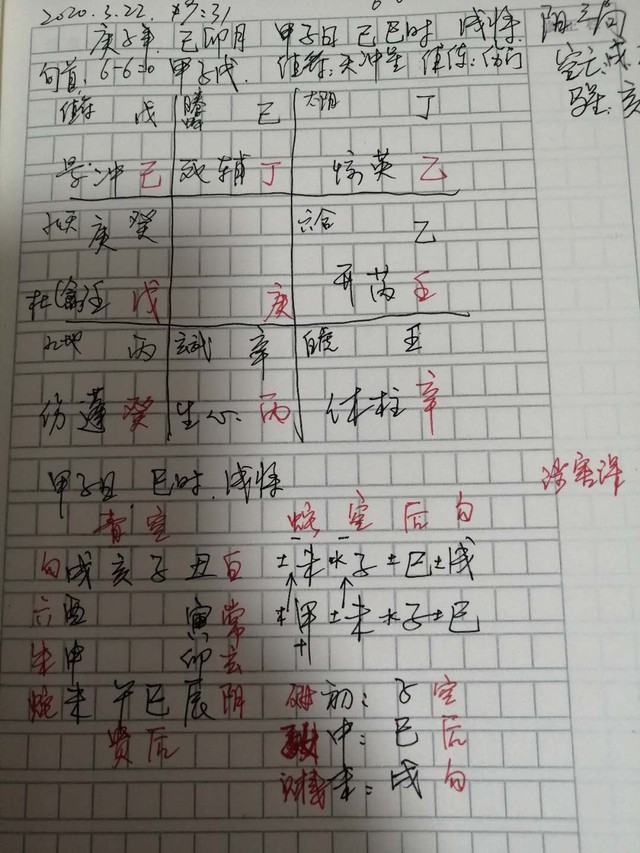 2020.3.22. 9:31
庚子年 己卯月 甲子日 己巳时 戌将 阳三局
旬首:6-6=0 甲子戊. 值符:天冲星 值使:伤门 空亡:戌
值符 戊 螣蛇 己 太阴 丁 马星:亥
景 冲 己 死 辅 丁 惊 英 乙
九天 庚 癸 六合 乙
杜(禽)任 戊 庚 开 芮 壬
九地 丙 玄武 辛 白虎 壬
伤 蓬 癸 生 心 丙 休 柱 辛
甲子日 巳时 戌将
青 空 蛇 空 后 勾
勾 戌 亥 子 丑 白 土未 水子 土巳 土戌
六 酉 寅 常 木甲 土未 水子 土巳
朱 申 卯 玄
蛇 未 午 巳 辰 阴 初:子 空
贵 后 中:巳 后
末:戌 勾